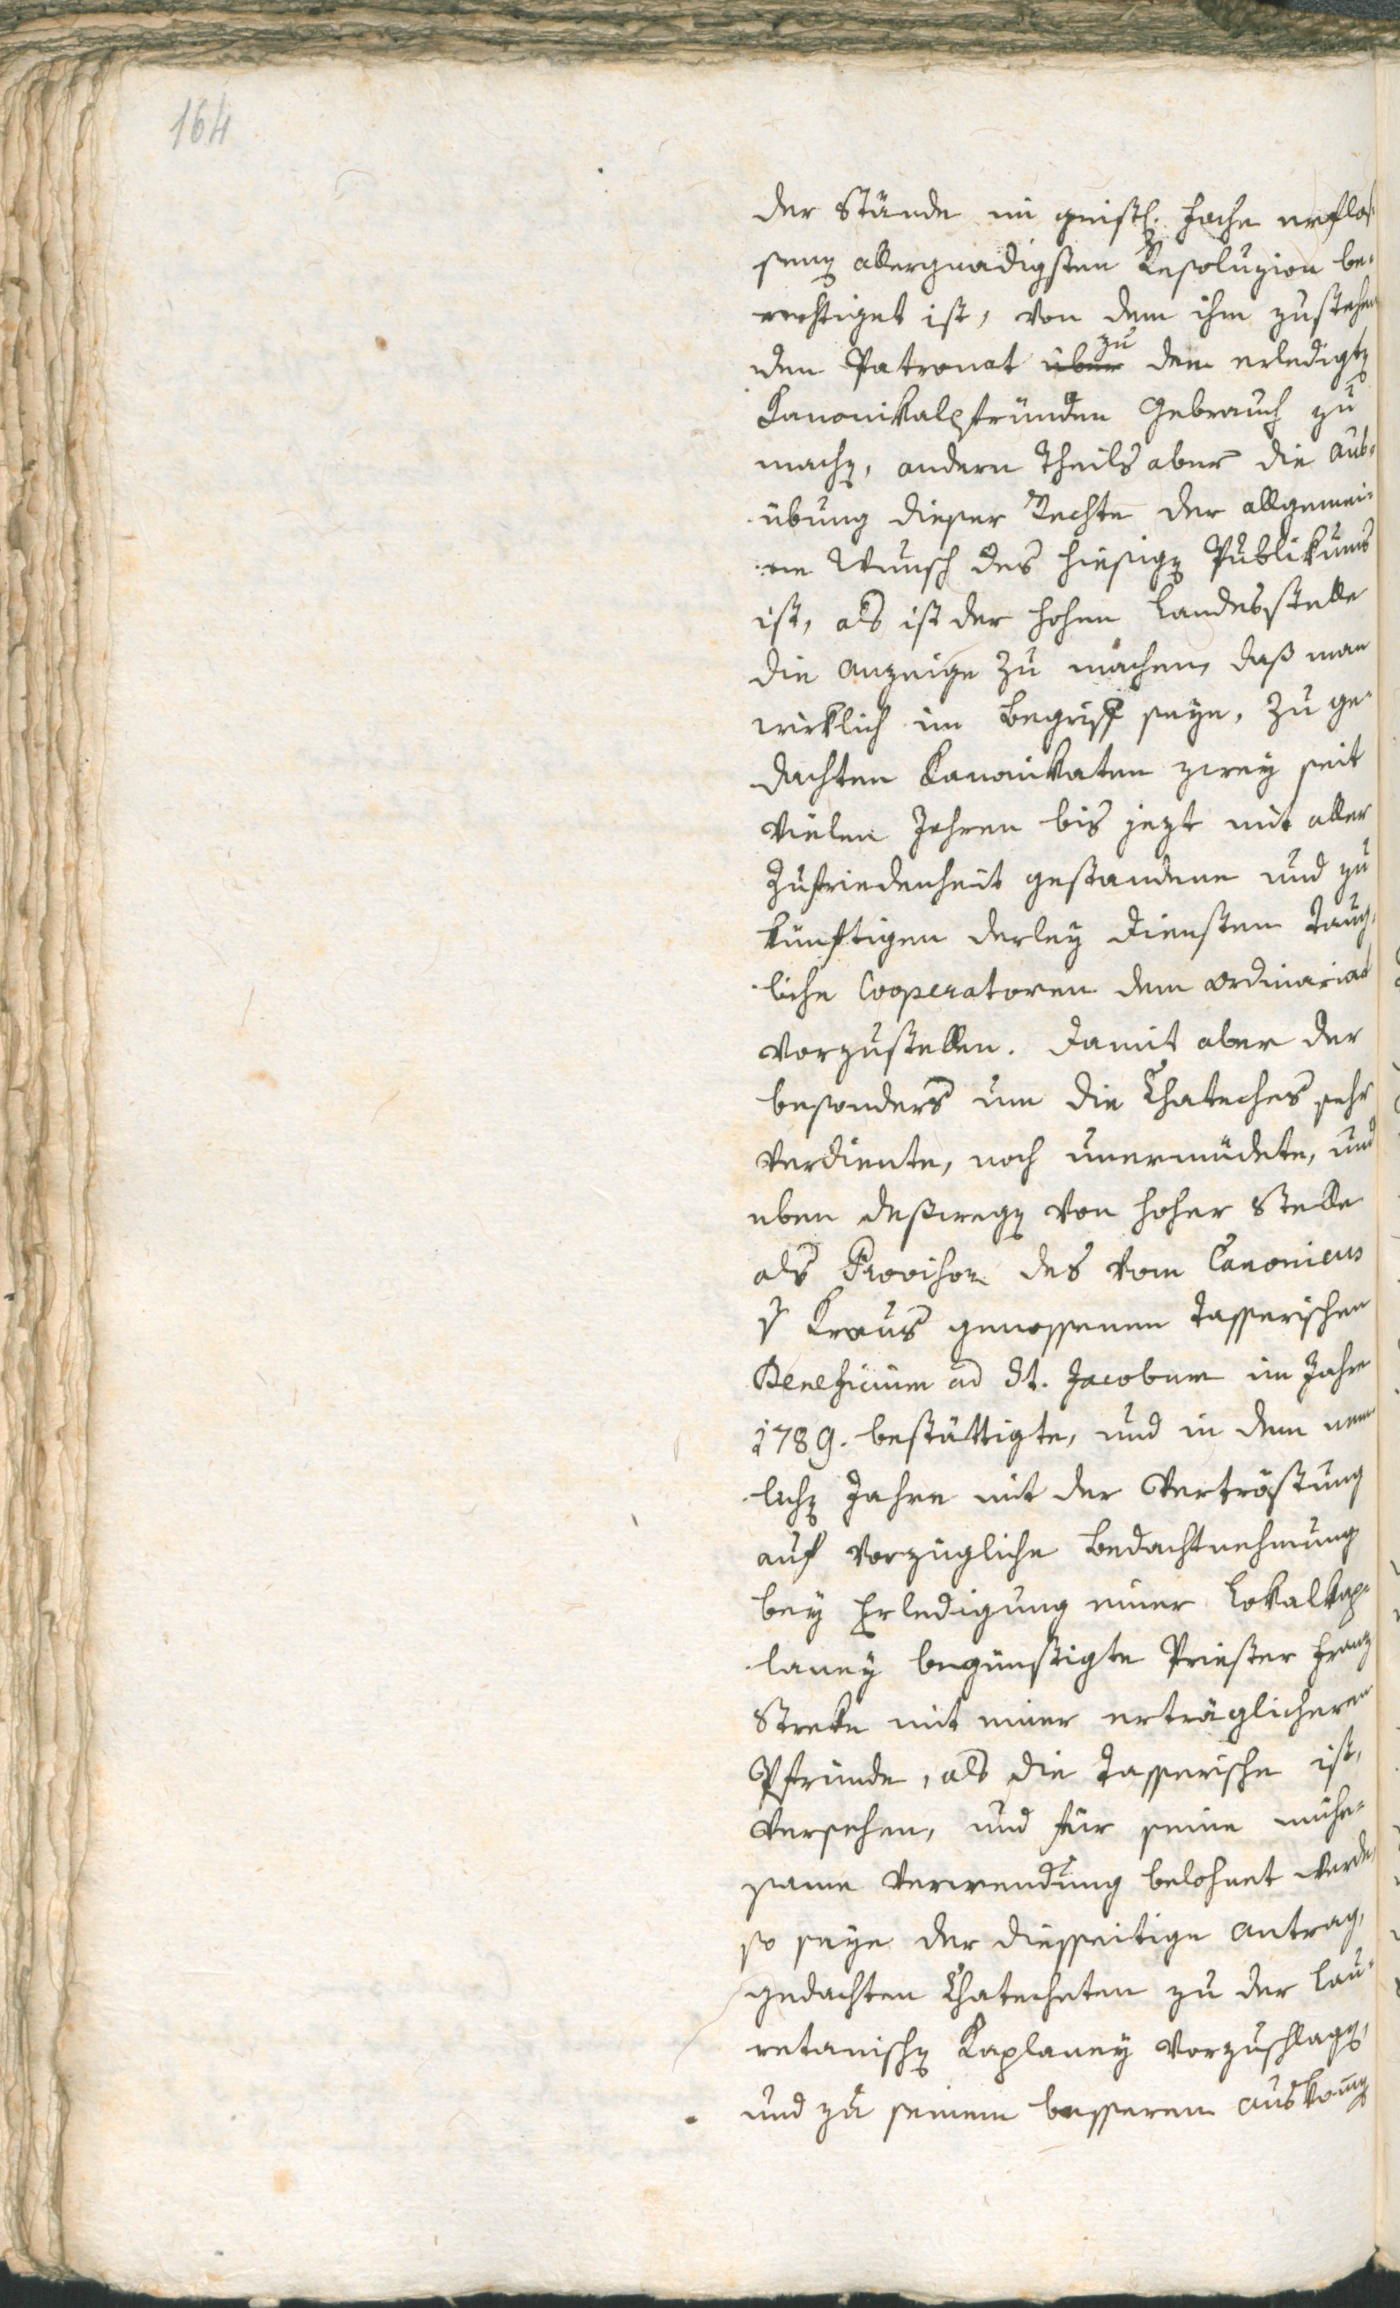 164
der Stände im geistl. Fache erflos¬
senen allergnädigsten Resoluzion be¬
rechtiget ist, von dem ihm zustehen
den Patronat über zu den erledigten
Kanonikalpfründen Gebrauch zu
machen, andern Theils aber die Aus¬
übung dieser Rechte der allgemei¬
ne Wunsch des hiesigen Publikums
ist, als ist der hohen Landesstelle
die Anzeige zu machen, daß man
wirklich im Begriff seye, zu ge¬
dachten Kanonikaten zwey seit
vielen Jahren bis jezt mit aller
Zufriedenheit gestandene und zu
künftigen derley Diensten taug¬
liche Cooperatoren dem Ordinariat
vorzustellen. Damit aber der
besonders um die Chateches sehr
verdiente, noch unermüdete, und
eben deßwegen von hoher Stelle
als Provisor des vom Canonicus
v Kraus genossenen Tasserischen
Beneficium ad St. Jacobum im Jahre
1789. bestättigte, und in dem nem
lichen Jahre mit der Vertröstung
auf vorzügliche Bedachtnehmung
bey Erledigung einer Lokalkap¬
laney begünstigte Priester Franz
Streke mit einer erträglicheren
Pfründe, als die Tasserische ist,
versehen, und für seine mühe¬
same Verwendung belohnet werde,
so seye der diesseitige Antrag,
gedachten Chatecheten zu der Lau¬
retanischen Kaplaney vorzuschlagen,
und zu seinem besseren Auskommen